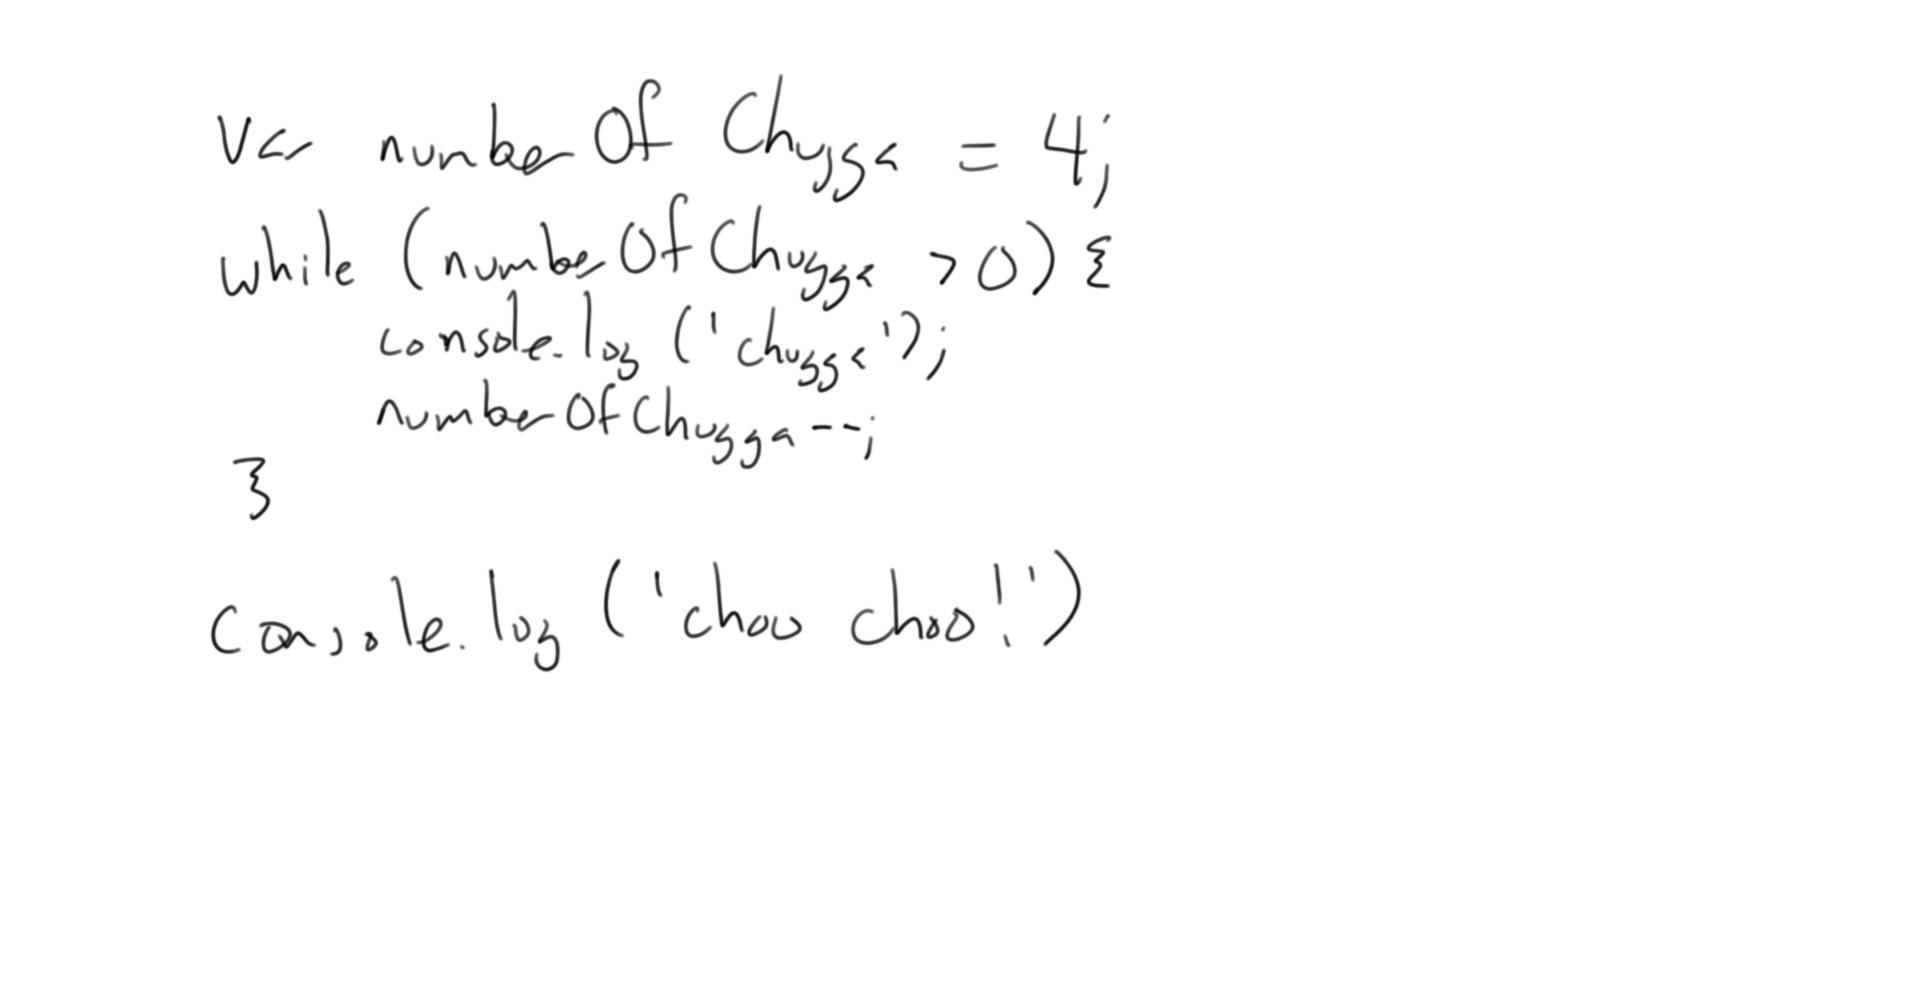 var numberOfChugga = 4;
while (numberOfChugga > 0) {
console.log ('chugga');
numberOfChugga--;
}
console.log ('choo choo!')